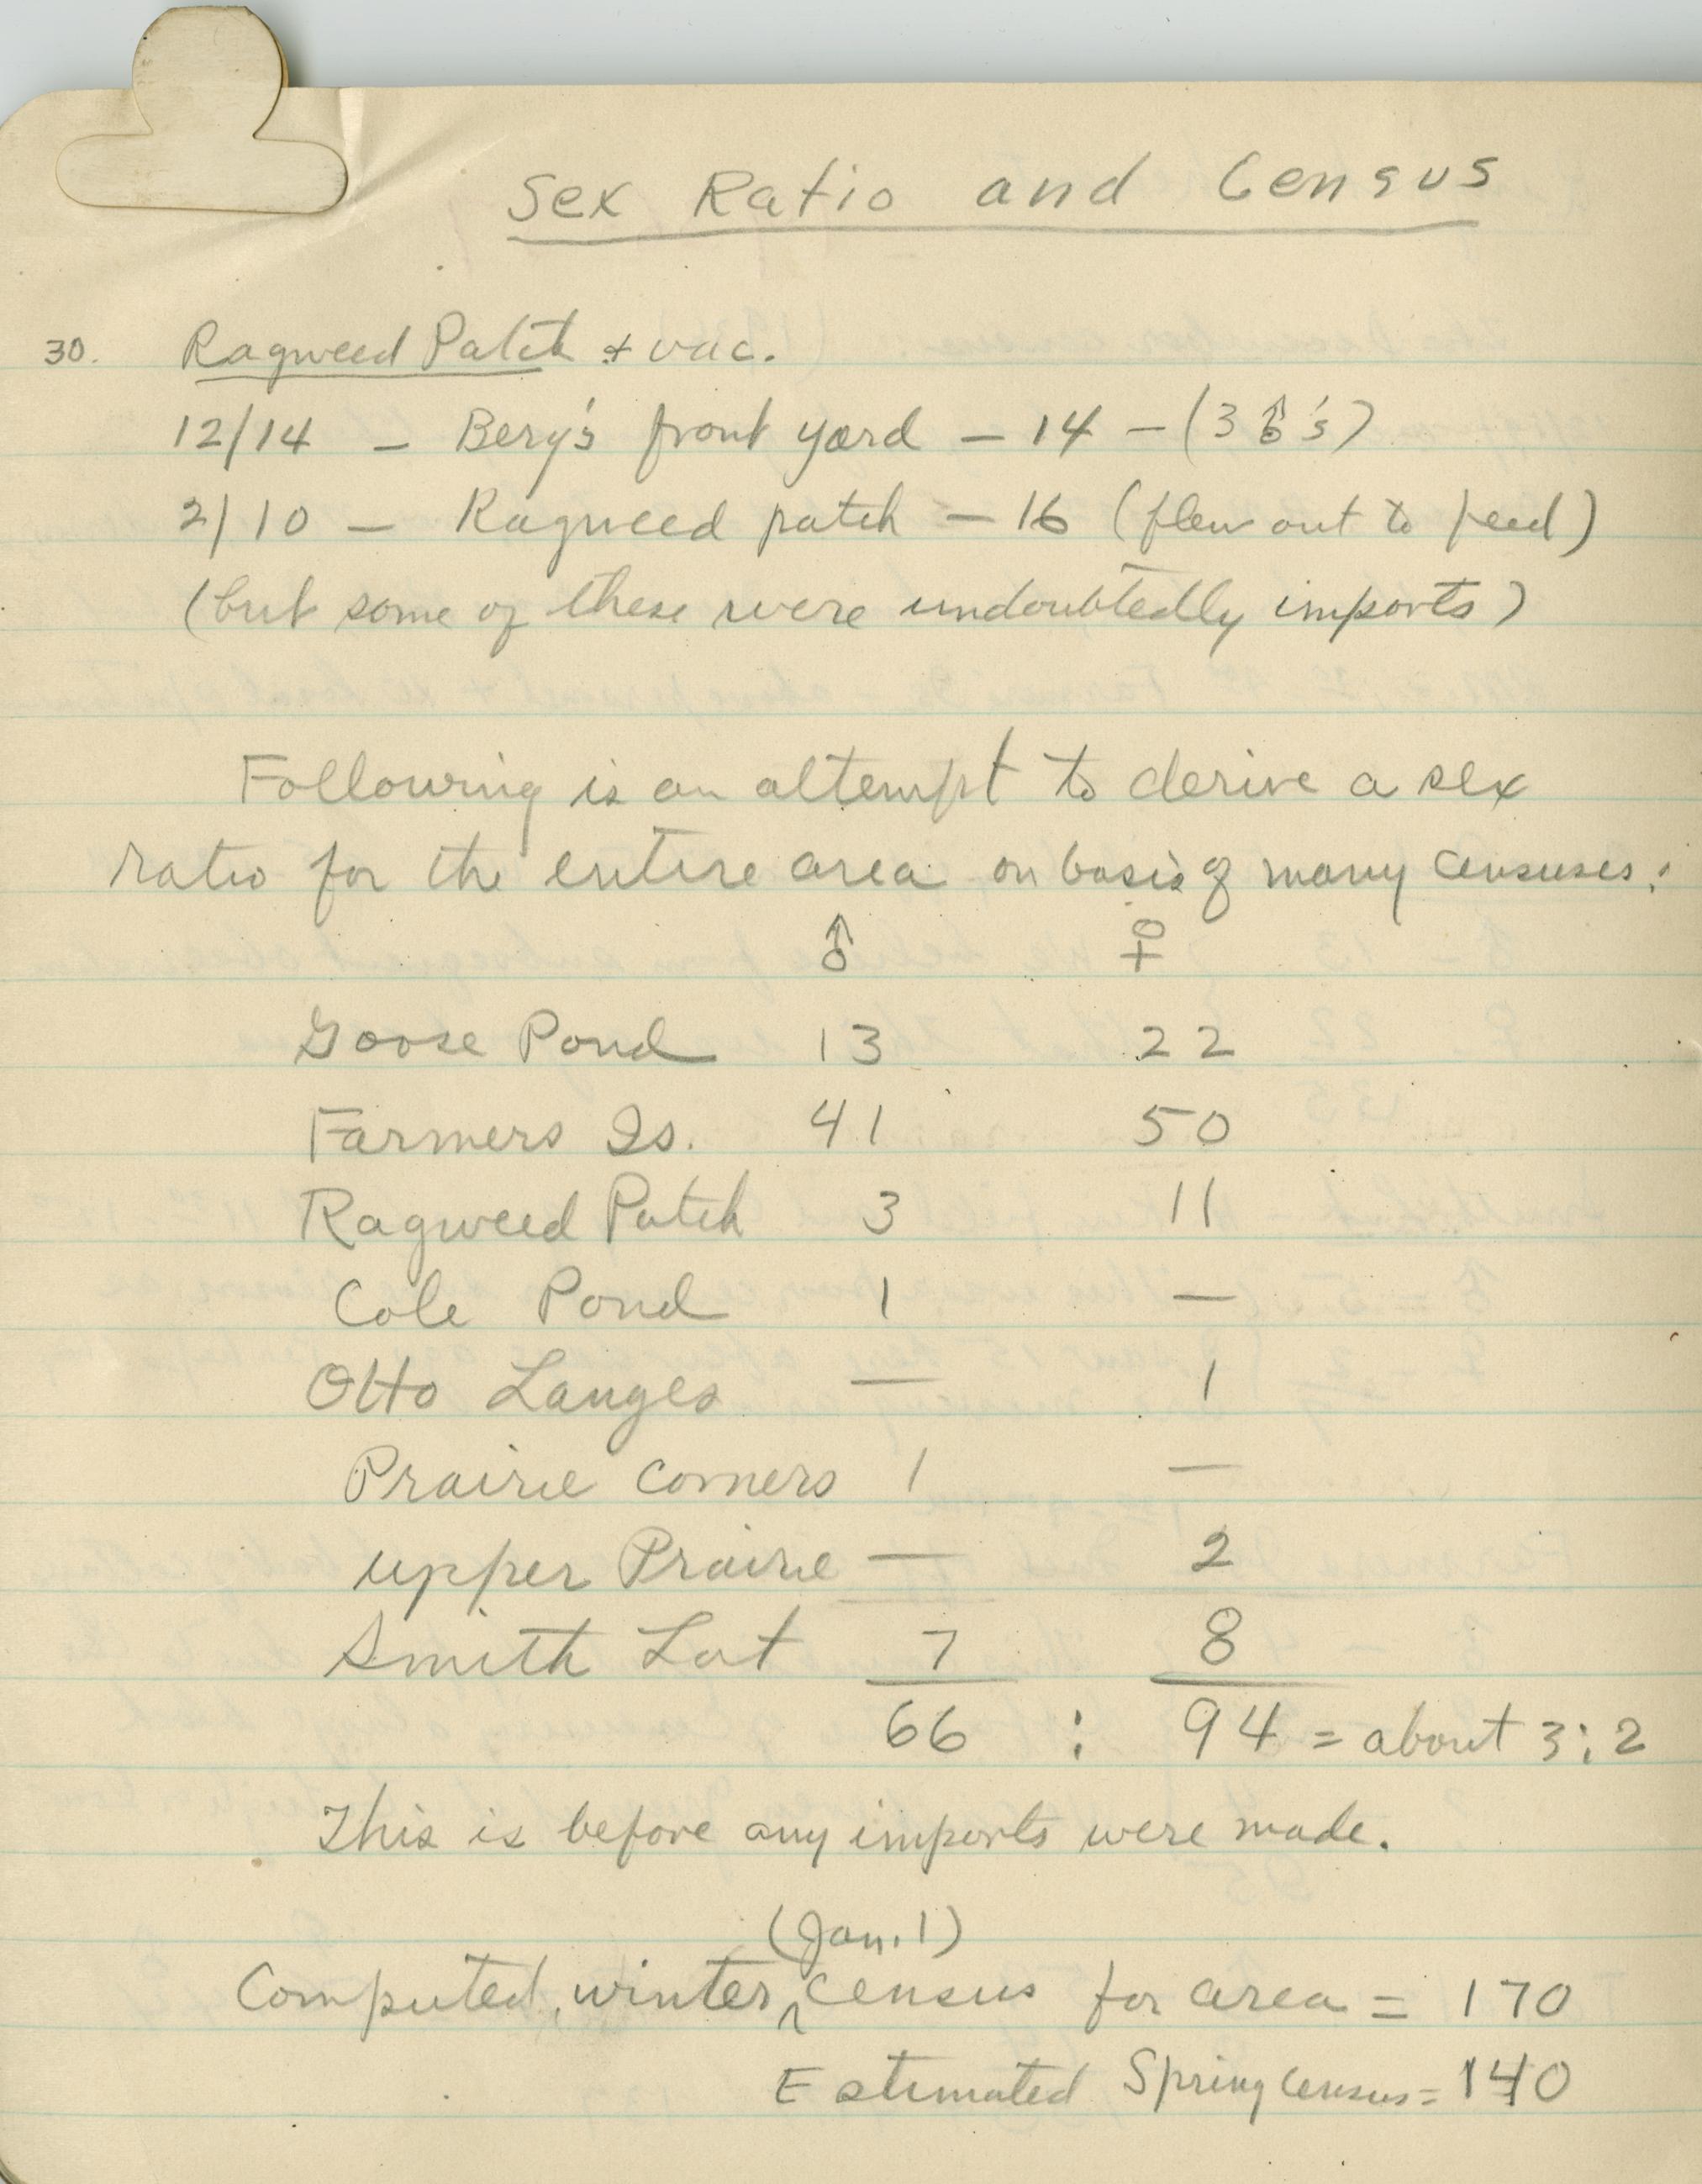 Sex Ratio and Census
30. Ragweed Patch & vac.
12/14 - Berg's front yard - 14 - (3 ♂'s)
2/10 - Ragweed patch - 16 (flew out to feed)
(but some of these were undoubtedly imports)
Following is an attempt to derive a sex
ratio for the entire area on basis of many censuses:
♂ ♀
Goose Pond 13 22
Farmers Is. 41 50
Ragweed Patch 3 11
Cole Pond 1 —
Otto Langes — 1
Prairie Corners 1 —
upper Prairie — 2
Smith Lot 7 8
66 : 94 = about 3:2
This is before any imports were made.
(Jan. 1)
Computed winter ^ census for area = 170
Estimated Spring census = 140